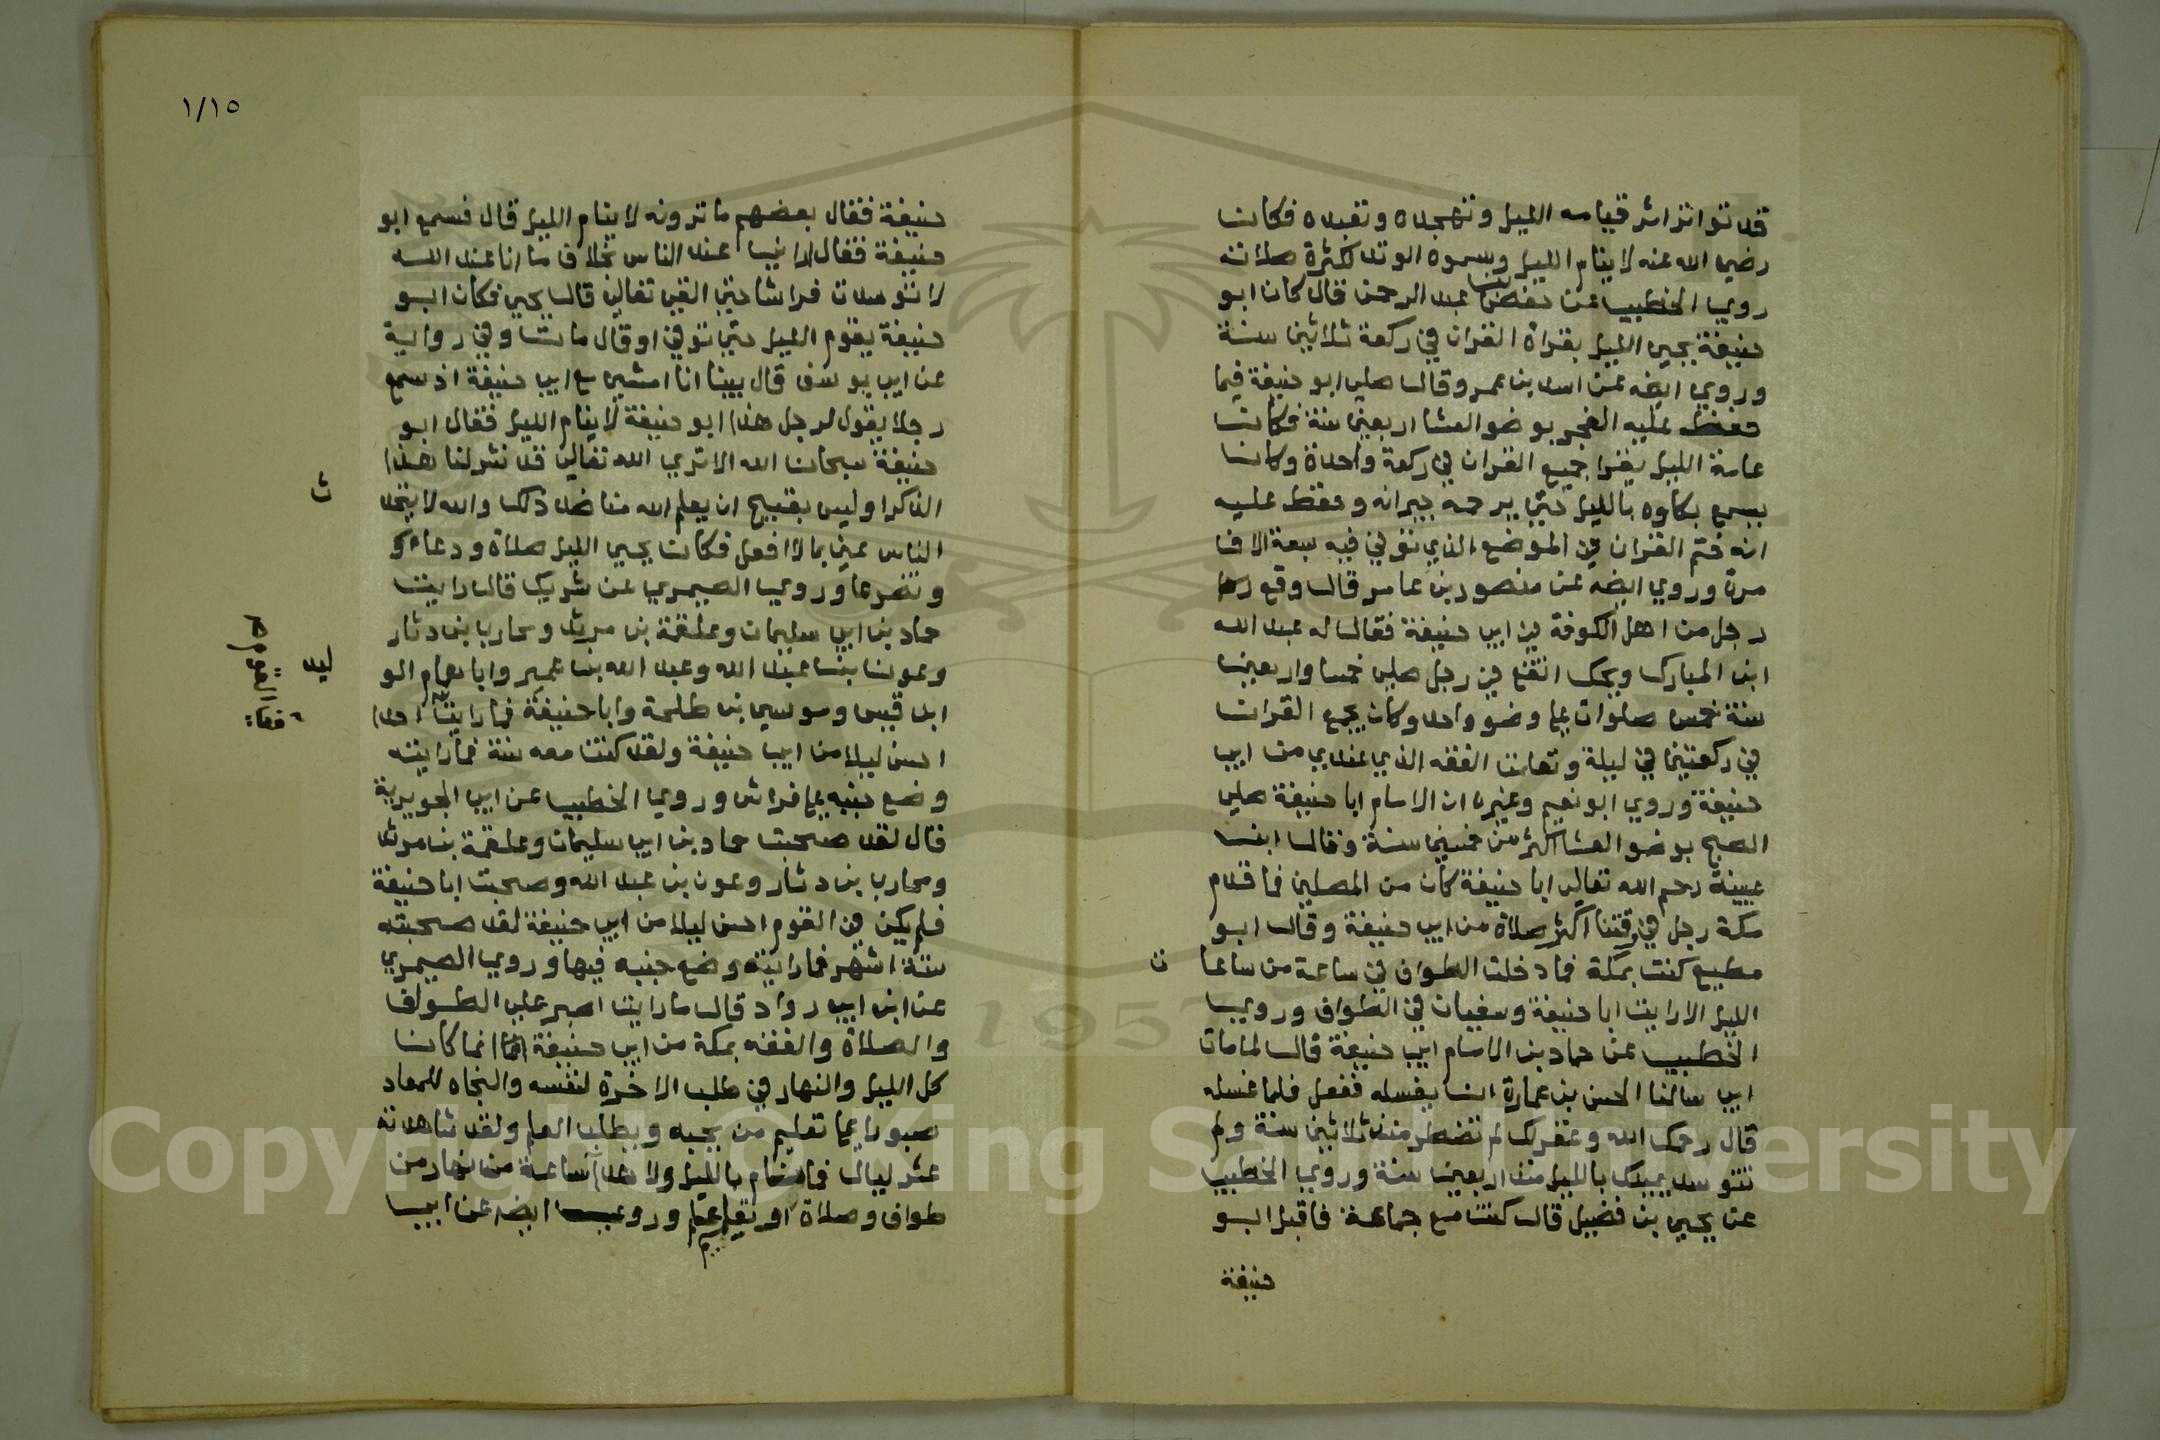 قد تواتر اثر قيامه الليل وتهجده وتعبده فكان
رضي الله عنه لا ينام الليل وسموه الوتد لكثرة صلاته
روي الخطيب عن حفص بن عبد الرحمن قال كان ابو
حنيفة يحيي الليل بقراة القران في ركعة ثلاثين سنة
وروي ايضه عن اسد بن عمر وقال صلي ابو حنيفة فيما
حفظ عليه الفجر بوضو العشا اربعين سنة فكان
عامة الليل يقرا جميع القران في ركعة واحدة وكان
يسمع بكاوه بالليل حتي يرحمه جيرانه وحفظ عليه
انه ختم القران في الموضع الذي توفي فيه سبعة الاف
مرة وروي ايضه عن منصور بن عامر قال وقع
رجل من اهل الكوفة في ابي حنيفة فقال له عبد الله
ابن المبارك ويحك اتقع في رجل صلي خمسا واربعين
سنة خمس صلوات علي وضو واحد وكان يجمع القران
في ركعتين في ليلة وتعلمت الفقه الذي عندي من ابي
حنيفة وروي ابو نعيم وغيره ان الامام ابا حنيفة صلي
الصبح بوضو العشا اكثر من خمسين سنة وقال ابن
عيينة رحم الله تعالي ابا حنيفة كان من المصلين فما قدم
مكة رجل في وقتنا اكثر صلاة من ابي حنيفة وقال ابو
مطيع كنت بمكة فما دخلت الطواف في ساعة من ساعا
ت
الليل الا رايت ابا حنيفة وسفيان في الطواف وروي
الخطيب عن حماد بن الامام ابي حنيفة قال لما مات
ابي سالنا الحسن بن عمارة ان يغسله ففعل فلما غسله
قال رحمك الله وغفر لك لم تفطر منذ ثلاثين سنة ولم
تتوسد يمينك بالليل منذ اربعين سنة وروي الخطيب
عن يحيي بن فضيل قال كنت مع جماعة فاقبل ابو
حنيفة
١/١٥
حنيفة فقال بعضهم ما ترونه لا ينام الليل قال فسمع ابو
حنيفة فقال اراني عند الناس بخلاف ما انا عند الله
لا توسدت فراشا حتي القي تعالي قال يحيي فكان ابو
حنيفة يقوم الليل حتي توفي او قال مات وفي رواية
عن ابي يوسف قال بينا انا امشي مع ابي حنيفة اذ سمع
رجلا يقول لرجل هذا ابو حنيفة لا ينام الليل فقال ابو
حنيفة سبحان الله الا تري الله تعالي قد نشر لنا هذا
الذكر اوليس بقبيح ان يعلم الله منا ضد ذلك والله لا يتحد
ث
الناس عني بما لا افعل فكان يحيي الليل صلاة ودعاء
وتضرعا وروي الصيمري عن شريك قال رايت
حماد بن ابي سليمان وعلقمة بن مرثد ومحارب بن دثار
وعون بن عبد الله وعبد الله بن عمير وابا همام الو
ليد
ابن قيس وموسي بن طلحة وابا حنيفة فما رايت احدا
احسن ليلا من ابي حنيفة ولقد كنت معه سنة فما رايته
وضع جنبه علي فراش وروي الخطيب عن ابي الجويرية
قال لقد صحبت حماد بن ابي سليمان وعلقمة بن مرثد
ومحارب بن دثار وعون بن عبد الله وصحبت ابا حنيفة
فلم يكن في القوم احسن ليلا من ابي حنيفة لقد صحبته
ستة اشهر فما رايته وضع جنبه فيها وروي الصيمري
عن ابن ابي رواد قال ما رايت اصبر علي الطواف
والصلاة والفقه بمكة من ابي حنيفة انما كان
كل الليل والنهار في طلب الاخرة لنفسه والنجاه للمعاد
صبورا علي تعليم من يجيه ويطلب العلم ولقد شاهدته
عشر ليال فما نام بالليل ولا هدا ساعة من نهار من
طواف وصلاة او تعليم وروي ايضه عن ابي